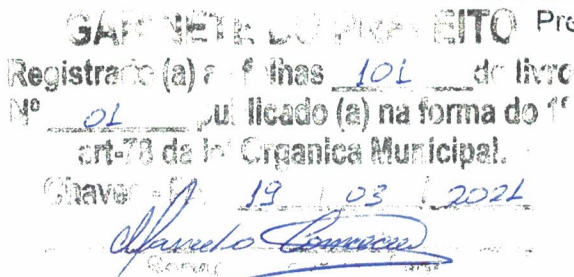 GABINETE DO PREFEITO Pre
Registrado (a) as folhas 101 do livro
Nº 01 publicado (a) na forma do 1º
art-78 da lei Organica Municipal.
Chaves - 19 / 03 / 2021